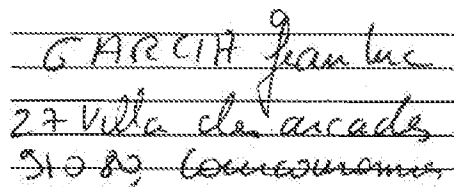 GARCIA Jean Luc
27 Villa des arcades
91080 Courcouronnes